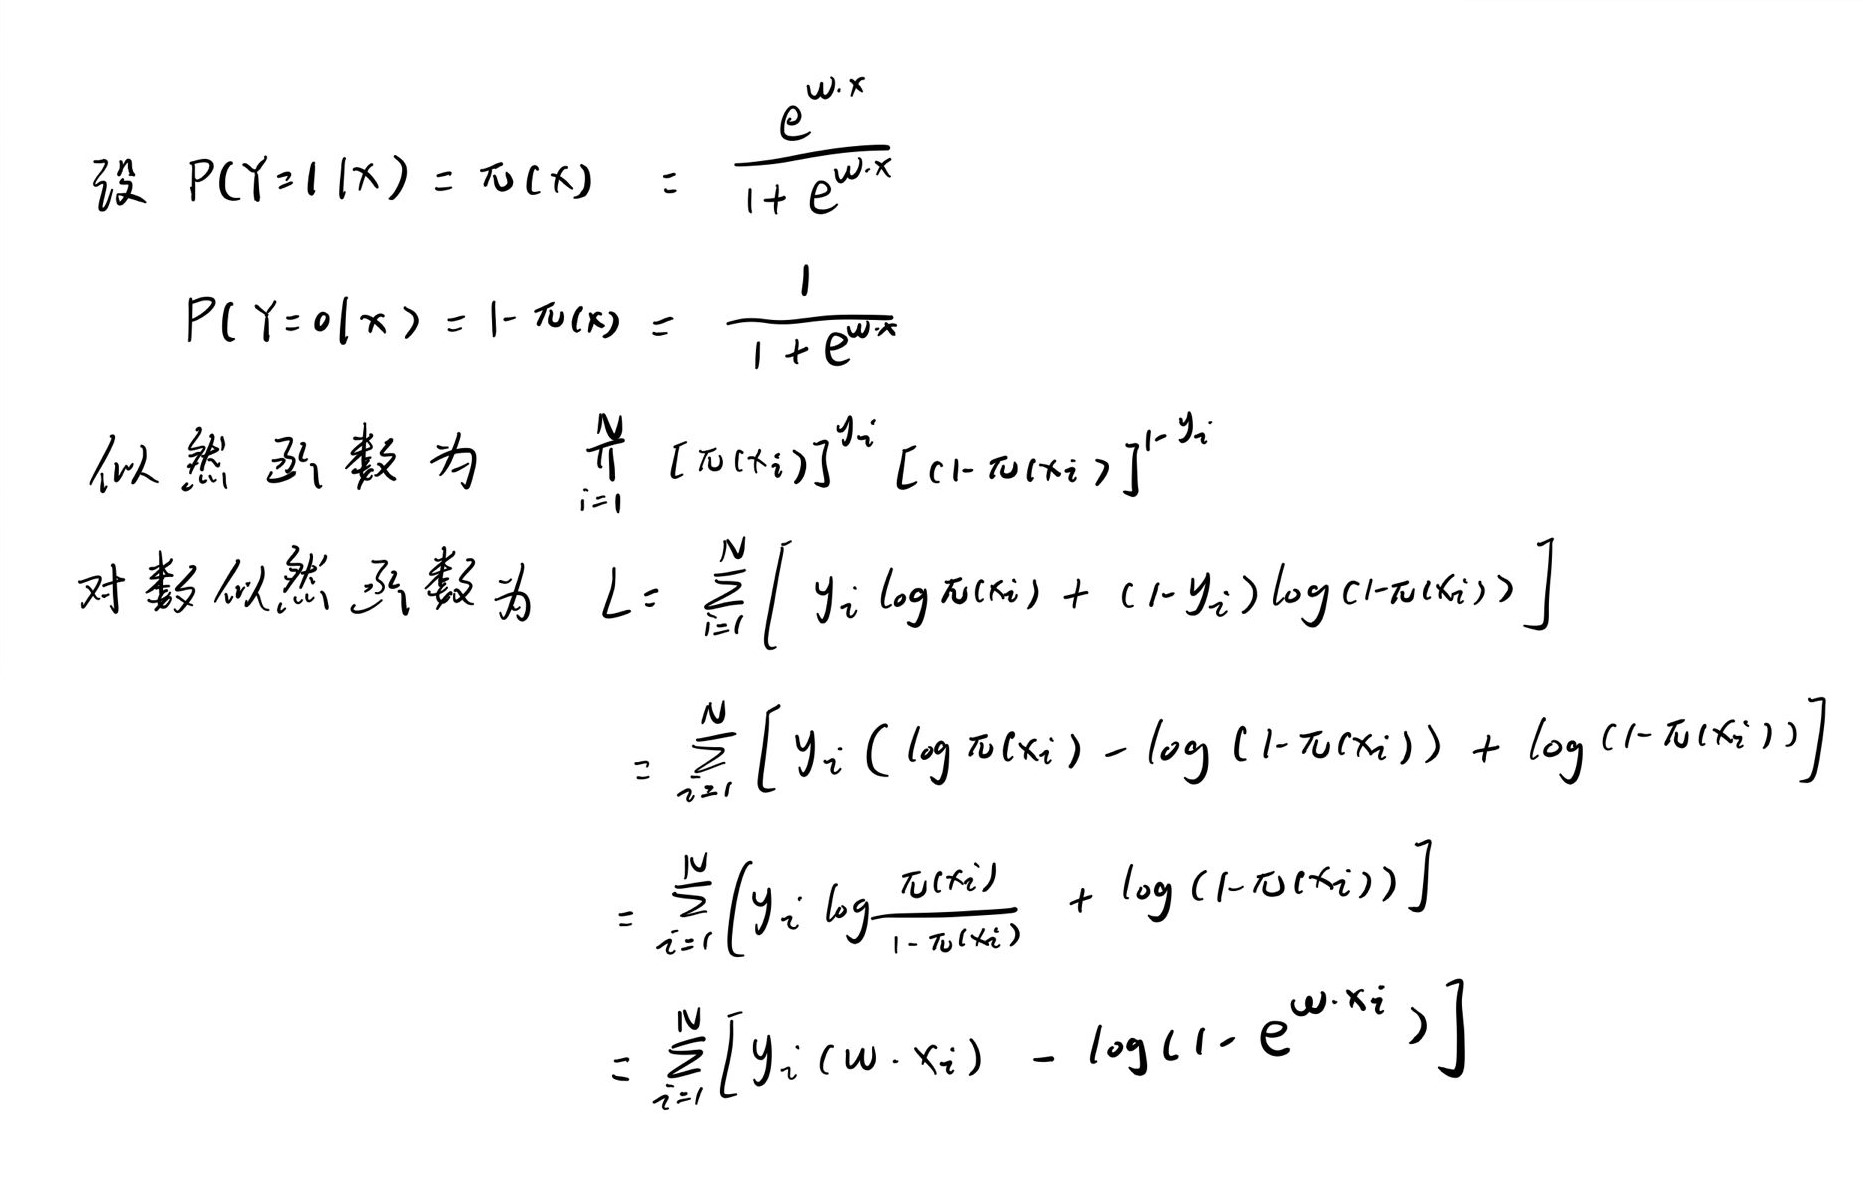 设 P(Y=1|x) = π(x) = \frac{e^{w·x}}{1+e^{w·x}}
P(Y=0|x) = 1-π(x) = \frac{1}{1+e^{w·x}}
似然函数为 \prod_{i=1}^{N} [π(x_i)]^{y_i} [(1-π(x_i)]^{1-y_i}
对数似然函数为 L= \sum_{i=1}^{N} [y_i log π(x_i) + (1-y_i) log(1-π(x_i))]
= \sum_{i=1}^{N} [y_i (log π(x_i) - log(1-π(x_i)) + log(1-π(x_i))]
= \sum_{i=1}^{N} [y_i log \frac{π(x_i)}{1-π(x_i)} + log(1-π(x_i))]
= \sum_{i=1}^{N} [y_i (w·x_i) - log(1-e^{w·x_i})]